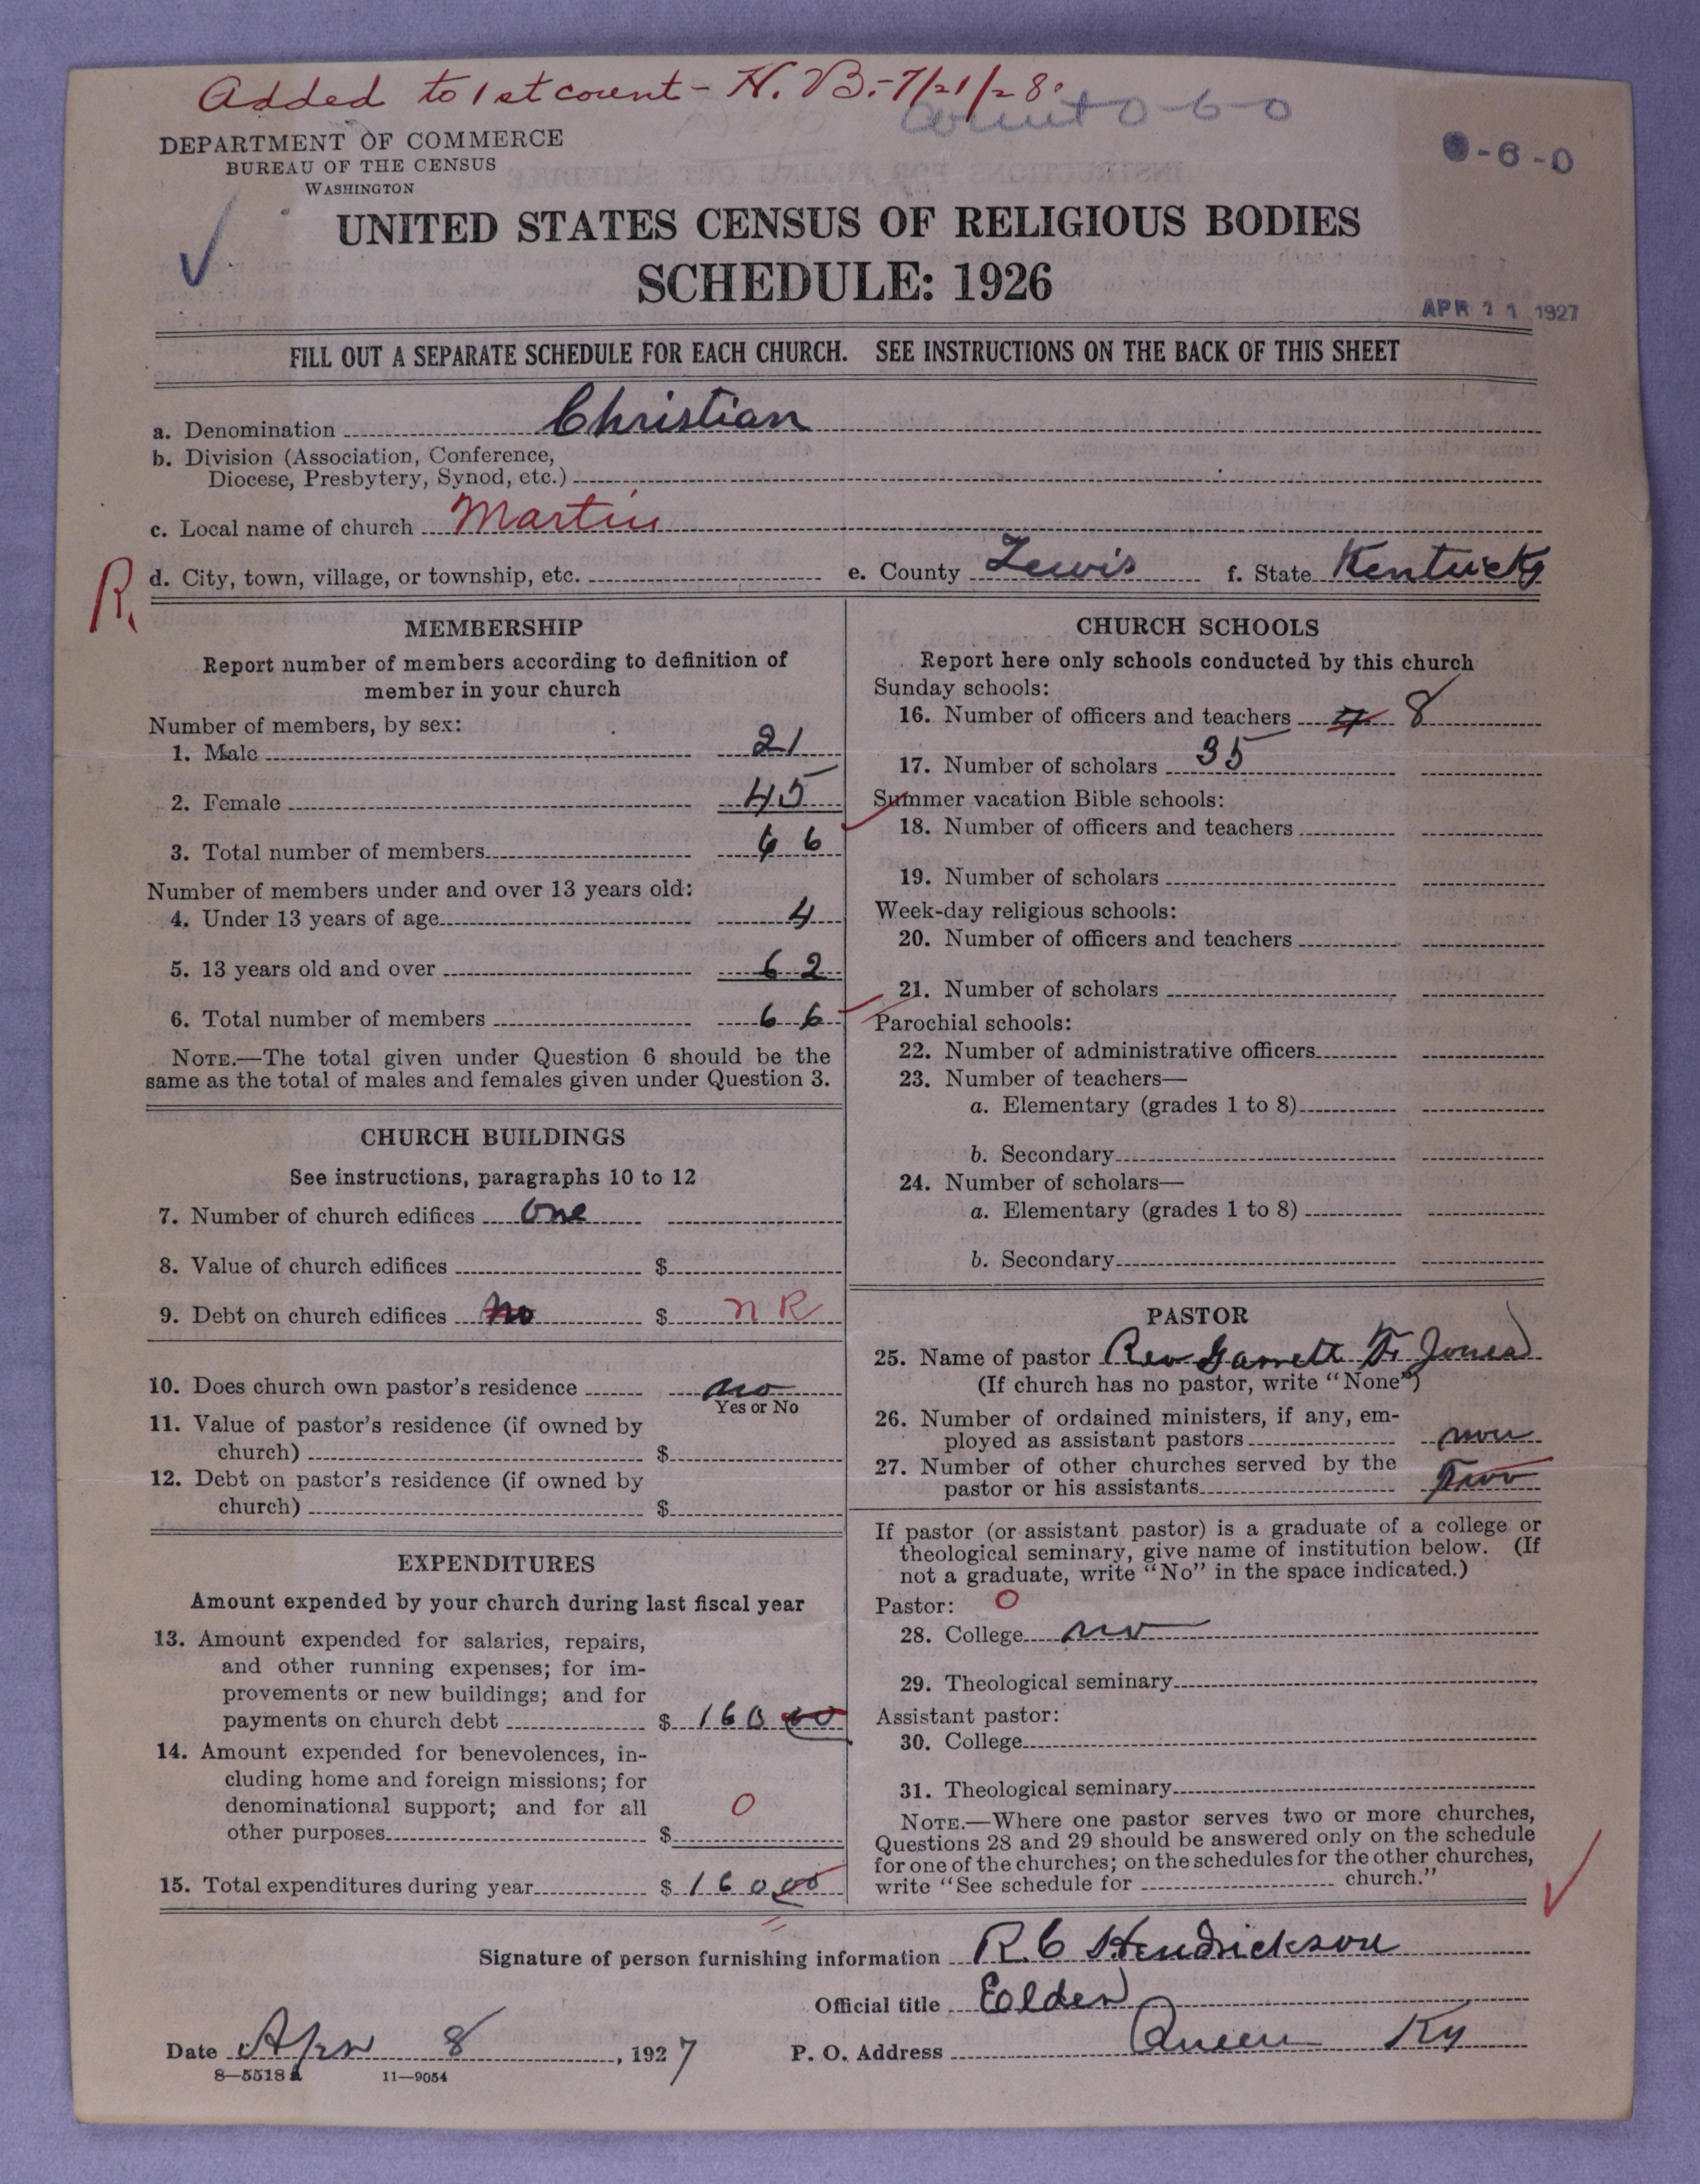 Added to 1st count - H. B. - 7/21/28.
count 0-6-0
DEPARTMENT OF COMMERCE
BUREAU OF THE CENSUS
WASHINGTON
0-6-0
UNITED STATES CENSUS OF RELIGIOUS BODIES
SCHEDULE: 1926
APR 11 1927
FILL OUT A SEPARATE SCHEDULE FOR EACH CHURCH. SEE INSTRUCTIONS ON THE BACK OF THIS SHEET
a. Denomination Christian
b. Division (Association, Conference,
Diocese, Presbytery, Synod, etc.)
c. Local name of church Martin
R. d. City, town, village, or township, etc. e. County Lewis f. State Kentucky
MEMBERSHIP
Report number of members according to definition of
member in your church
Number of members, by sex:
1. Male 21
2. Female 45
3. Total number of members 66
Number of members under and over 13 years old:
4. Under 13 years of age 4
5. 13 years old and over 62
6. Total number of members 66
NOTE.—The total given under Question 6 should be the
same as the total of males and females given under Question 3.
CHURCH BUILDINGS
See instructions, paragraphs 10 to 12
7. Number of church edifices one
8. Value of church edifices $
9. Debt on church edifices no $ n R
10. Does church own pastor's residence no
Yes or No
11. Value of pastor's residence (if owned by
church) $
12. Debt on pastor's residence (if owned by
church) $
EXPENDITURES
Amount expended by your church during last fiscal year
13. Amount expended for salaries, repairs,
and other running expenses; for im-
provements or new buildings; and for
payments on church debt $ 160 00
14. Amount expended for benevolences, in-
cluding home and foreign missions; for
denominational support; and for all
other purposes $ 0
15. Total expenditures during year $ 160 00
CHURCH SCHOOLS
Report here only schools conducted by this church
Sunday schools:
16. Number of officers and teachers 8
17. Number of scholars 35
Summer vacation Bible schools:
18. Number of officers and teachers
19. Number of scholars
Week-day religious schools:
20. Number of officers and teachers
21. Number of scholars
Parochial schools:
22. Number of administrative officers
23. Number of teachers—
a. Elementary (grades 1 to 8)
b. Secondary
24. Number of scholars—
a. Elementary (grades 1 to 8)
b. Secondary
PASTOR
25. Name of pastor Rev Garrett F. Jones
(If church has no pastor, write "None")
26. Number of ordained ministers, if any, em-
ployed as assistant pastors
27. Number of other churches served by the
pastor or his assistants Two
If pastor (or assistant pastor) is a graduate of a college or
theological seminary, give name of institution below. (If
not a graduate, write "No" in the space indicated.)
Pastor: 0
28. College no
29. Theological seminary
Assistant pastor:
30. College
31. Theological seminary
NOTE.—Where one pastor serves two or more churches,
Questions 28 and 29 should be answered only on the schedule
for one of the churches; on the schedules for the other churches,
write "See schedule for church."
Signature of person furnishing information R. C Hendrickson
Official title Eolder
Date Apr 8, 1927 P. O. Address Queen Ky
8—5518 a 11—9054